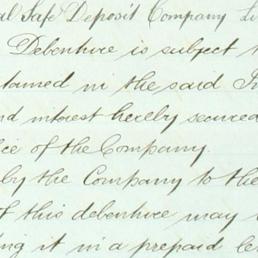 al Safe Deposit Company Li
Debenture is subject t
tained in the said In
nd interest hereby secured
ice of the Company.
by the Company to the
f this debenture may
ing it in a prepaid le